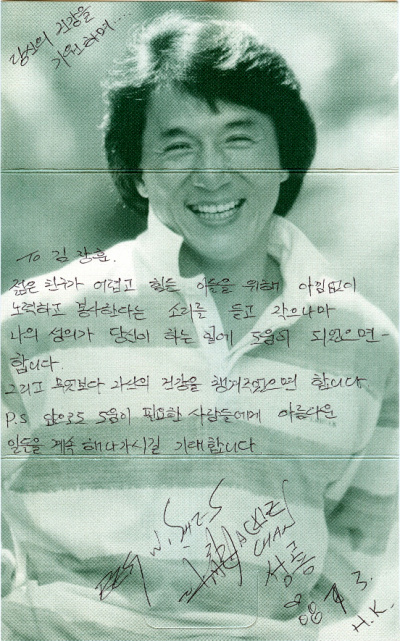 당신의 건강을
기원하며....
To 김장훈.
젊은 친구가 어렵고 힘든 이들을 위해 아낌없이
노력하고 봉사한다는 소리를 듣고 작으나마
나의 성의가 당신이 하는 일에 도움이 되었으면-
합니다.
그리고 무엇보다 자신의 건강을 챙겨주었으면 합니다.
P.S 앞으로도 도움이 필요한 사람들에게 아름다운
일들을 계속 해나가시길 기대합니다
BEST WISHES
JACKIE
CHAN
성룡
H.K.